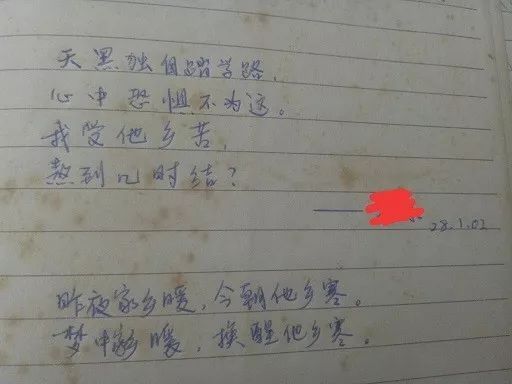 天黑独自踏学路,
心中恐惧不为这。
我受他乡苦,
熬到几时结?
28.1.02
昨夜家乡暖,今朝他乡寒。
梦中家乡暖,换醒他乡寒。